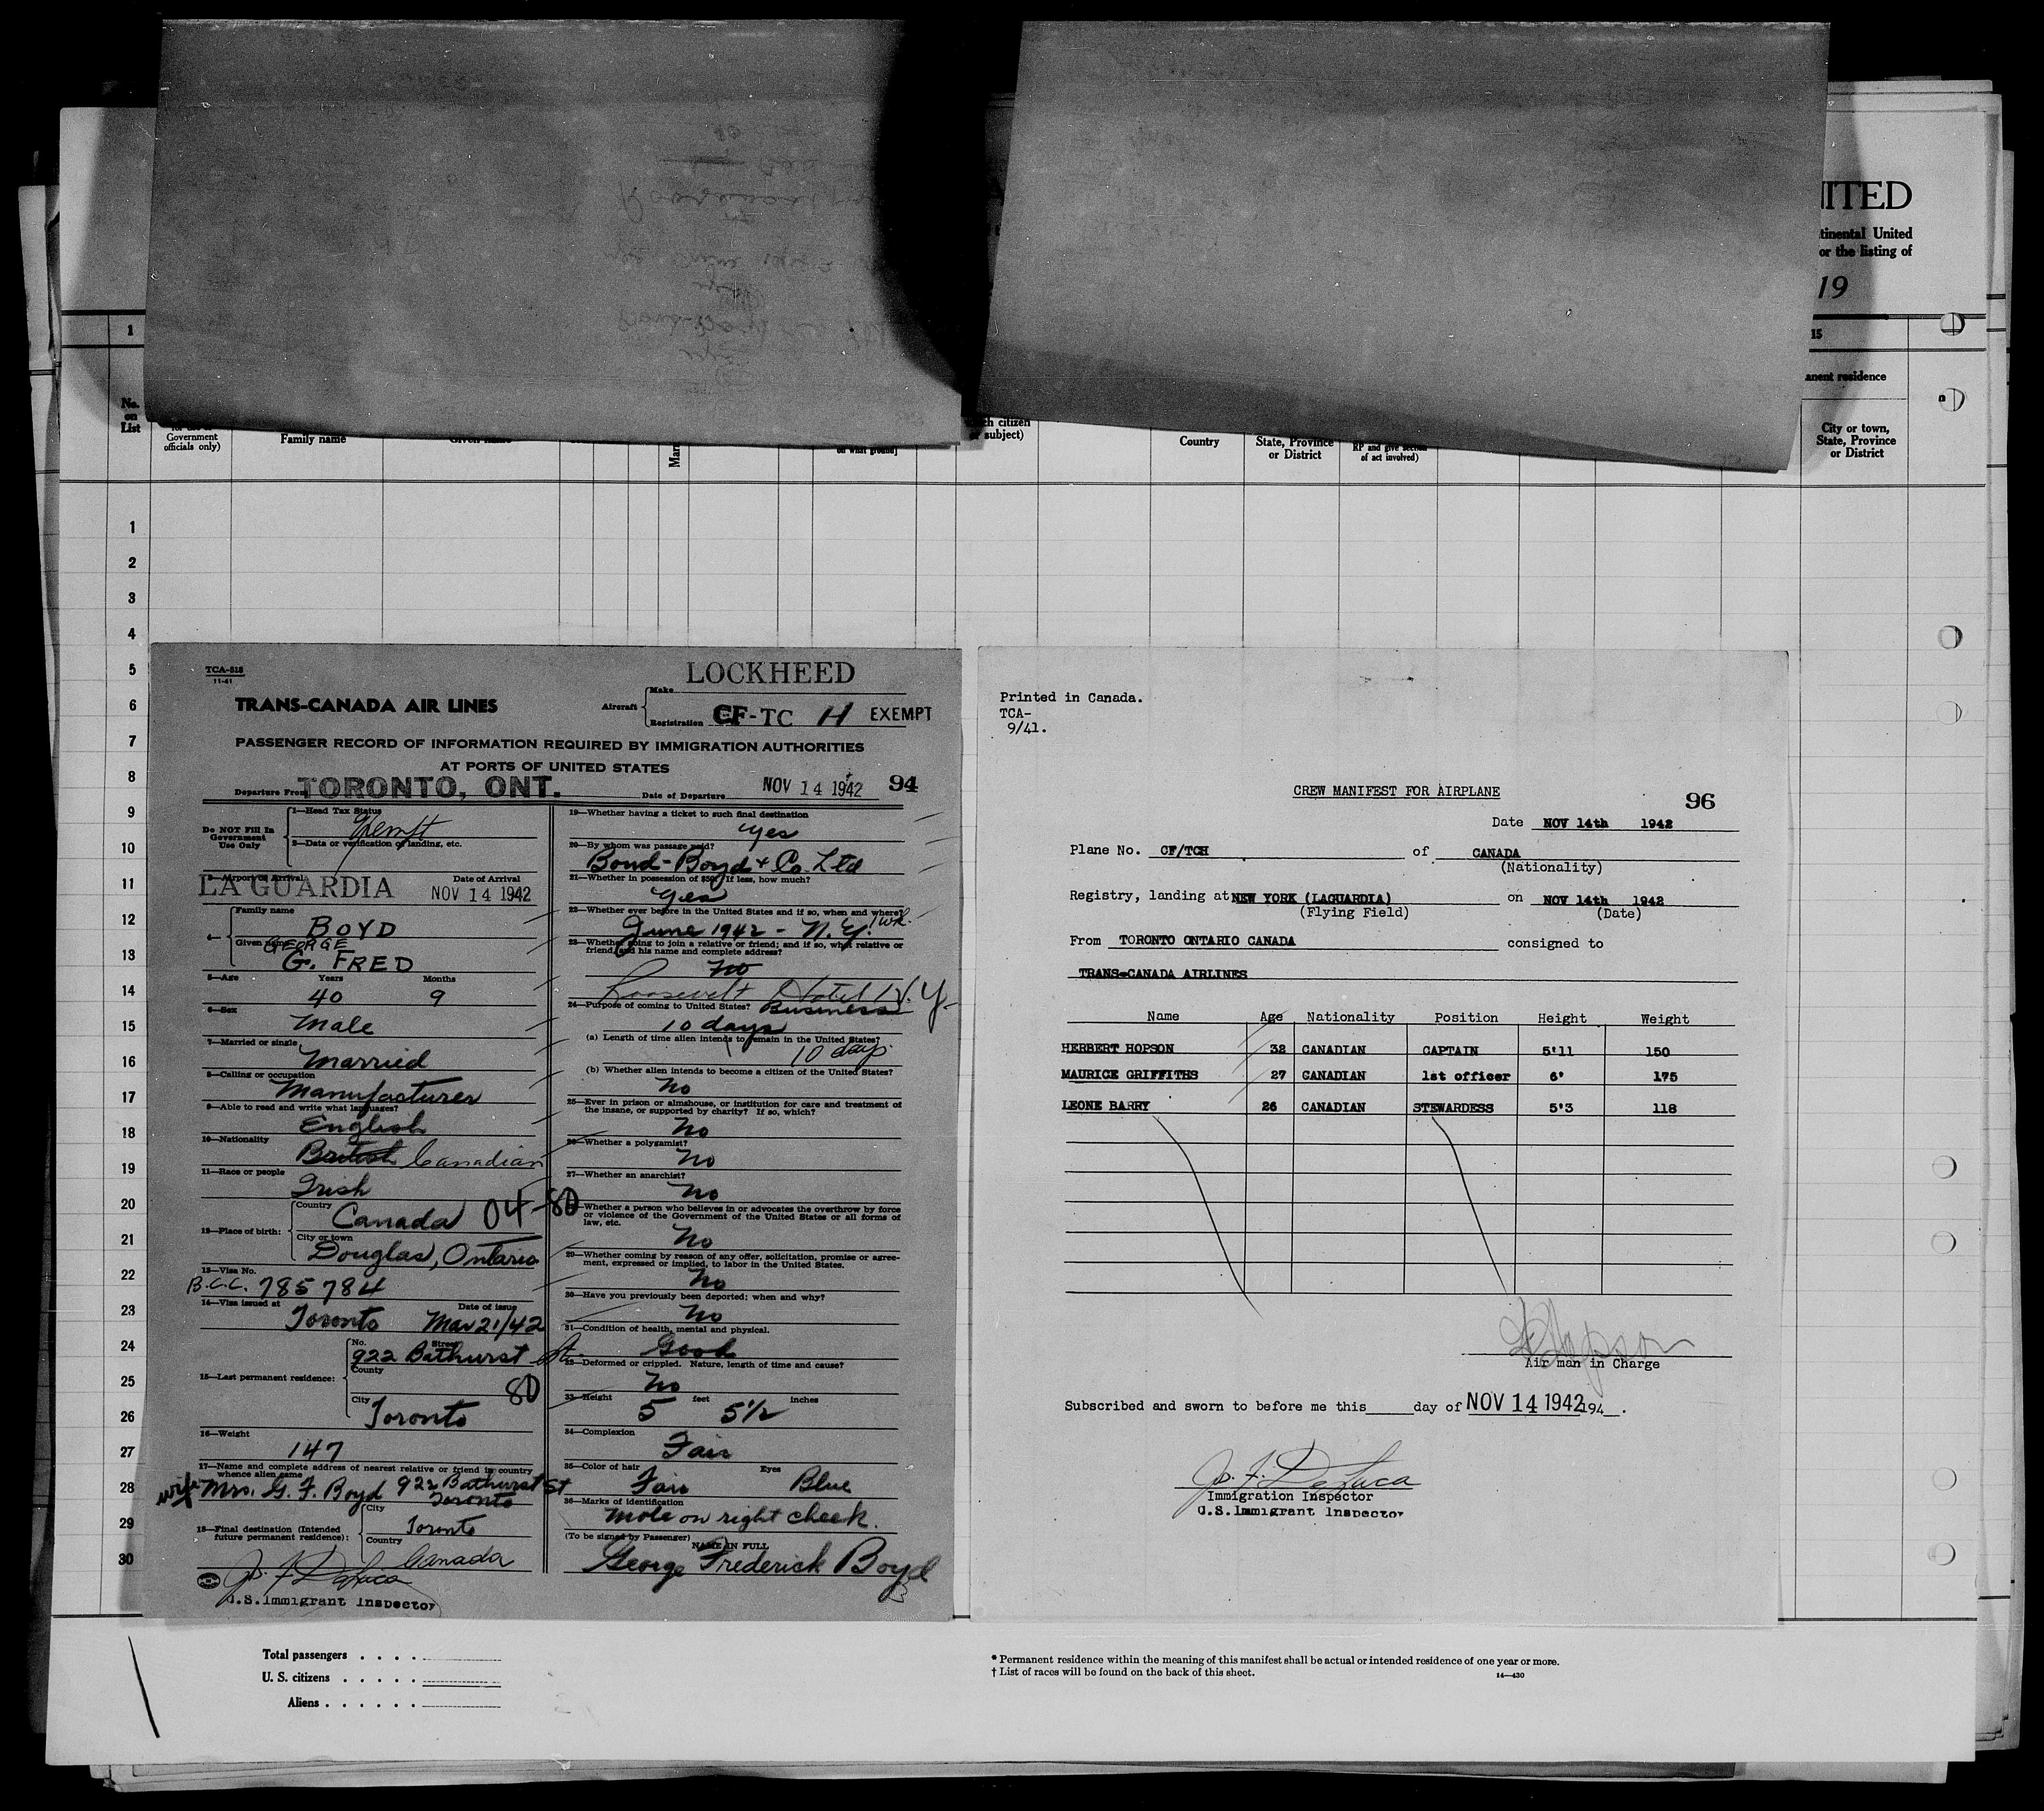 UNITED
tinental United
or the listing of
19
1
15
anent residence
No.
on
List
Government
officials only)
Family name
Given name
on what ground]
ch citizen
subject)
Country
State, Province
or District
RP and give section
of act involved)
City or town,
State, Province
or District
1
2
3
4
5
6
7
8
9
10
11
12
13
14
15
16
17
18
19
20
21
22
23
24
25
26
27
28
29
30
TCA-518
11-41
LOCKHEED
TRANS-CANADA AIR LINES
Aircraft
Make
Registration CF-TC H EXEMPT
PASSENGER RECORD OF INFORMATION REQUIRED BY IMMIGRATION AUTHORITIES
AT PORTS OF UNITED STATES
Departure From TORONTO, ONT.
Date of Departure NOV 14 1942 94
Do NOT Fill In
Government
Use Only
1—Head Tax Status
Exempt
2—Data or verification of landing, etc.
3—Airport of Arrival
Date of Arrival
LA GUARDIA NOV 14 1942
4—
Family name
BOYD
Given name GEORGE
G. FRED
5—Age Years Months
40 9
6—Sex
Male
7—Married or single
Married
8—Calling or occupation
Manufacturer
9—Able to read and write what languages?
English
10—Nationality
British Canadian
11—Race or people
Irish
12—Place of birth:
Country
Canada 04-80
City or town
Douglas, Ontario
13—Visa No.
B.C.C. 785784
14—Visa issued at Date of issue
Toronto Mar 21/42
15—Last permanent residence:
No. Street
922 Bathurst St.
County
80
City
Toronto
16—Weight
147
17—Name and complete address of nearest relative or friend in country
whence alien came
wife Mrs. G. F. Boyd 922 Bathurst St
Toronto
18—Final destination (Intended
future permanent residence):
City
Toronto
Country
Canada
Jo. F. DeLuca
U.S. Immigrant Inspector
19—Whether having a ticket to such final destination
Yes
20—By whom was passage paid?
Bond-Boyd & Co. Ltd
21—Whether in possession of $50? If less, how much?
Yes
22—Whether ever before in the United States and if so, when and where?
June 1942 - N.Y. 1 wk.
23—Whether going to join a relative or friend; and if so, what relative or
friend, and his name and complete address?
No
Roosevelt Hotel N.Y.
24—Purpose of coming to United States? Business
10 days
(a) Length of time alien intends to remain in the United States?
10 days
(b) Whether alien intends to become a citizen of the United States?
No
25—Ever in prison or almshouse, or institution for care and treatment of
the insane, or supported by charity? If so, which?
No
26—Whether a polygamist?
No
27—Whether an anarchist?
No
28—Whether a person who believes in or advocates the overthrow by force
or violence of the Government of the United States or all forms of
law, etc.
No
29—Whether coming by reason of any offer, solicitation, promise or agree-
ment, expressed or implied, to labor in the United States.
No
30—Have you previously been deported; when and why?
No
31—Condition of health, mental and physical.
Good
32—Deformed or crippled. Nature, length of time and cause?
No
33—Height feet inches
5 5½
34—Complexion
Fair
35—Color of hair Eyes
Fair Blue
36—Marks of identification
Mole on right cheek.
(To be signed by Passenger)
NAME IN FULL
George Frederick Boyd
Printed in Canada.
TCA-
9/41.
CREW MANIFEST FOR AIRPLANE
96
Date NOV 14th 1942
Plane No. CF/TCH of CANADA
(Nationality)
Registry, landing at NEW YORK (LAGUARDIA) on NOV 14th 1942
(Flying Field) (Date)
From TORONTO ONTARIO CANADA consigned to
TRANS-CANADA AIRLINES
Name Age Nationality Position Height Weight
HERBERT HOPSON 32 CANADIAN CAPTAIN 5'11 150
MAURICE GRIFFITHS 27 CANADIAN 1st officer 6' 175
LEONE BARRY 26 CANADIAN STEWARDESS 5'3 118
H Hopson
Air man in Charge
Subscribed and sworn to before me this day of NOV 14 1942 194 .
Jo. F. DeLuca
Immigration Inspector
U.S. Immigrant Inspector
Total passengers . . . .
U. S. citizens . . . . .
Aliens . . . . . .
* Permanent residence within the meaning of this manifest shall be actual or intended residence of one year or more.
† List of races will be found on the back of this sheet.
14—430